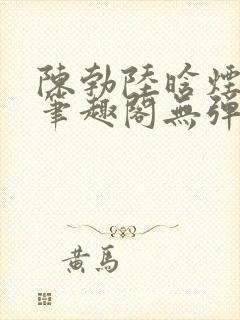 陳勃陸晗煙
筆趣閣無彈
黃馬